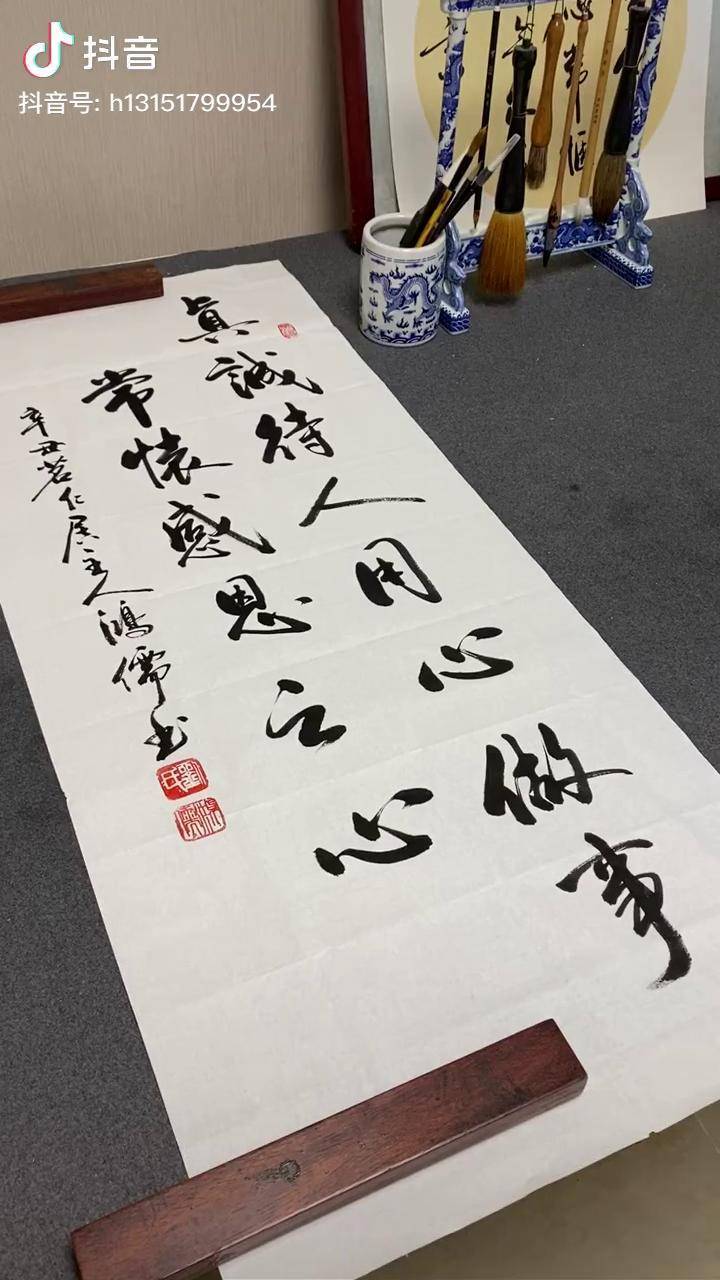 抖音
抖音号: h13151799954
真誠待人用心做事
常懷感恩之心
辛丑茗仁居主人鴻儒书